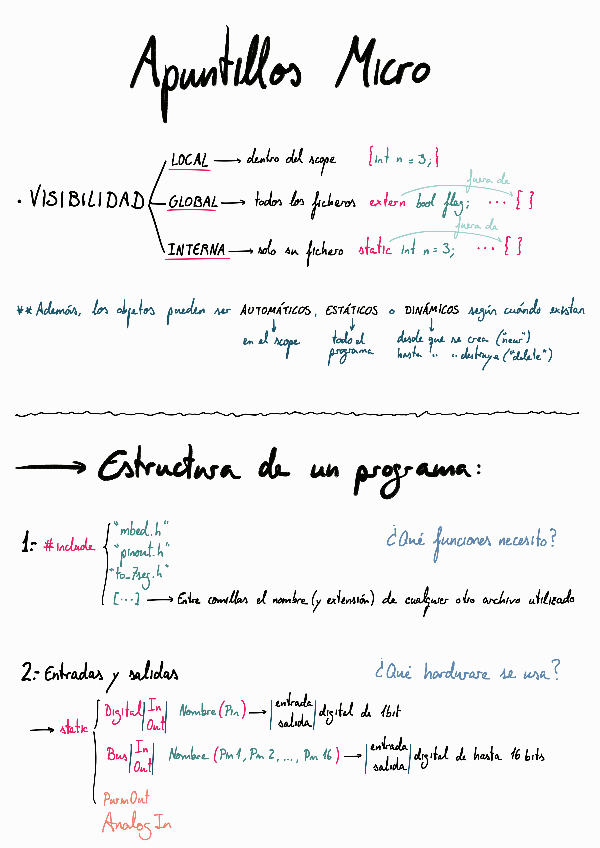 Apuntillos Micro
LOCAL → dentro del scope {int n = 3;}
fuera de
· VISIBILIDAD GLOBAL → todos los ficheros extern bool flag; ... { }
fuera de
INTERNA → solo su fichero static int n = 3; ... { }
**Además, los objetos pueden ser AUTOMÁTICOS, ESTÁTICOS o DINÁMICOS según cuándo existan
en el scope todo el desde que se crea ("new")
programa hasta " " destruya ("delete")
→ Estructura de un programa:
"mbed.h"
1.- #include "pinout.h" ¿Qué funciones necesito?
"to_7seg.h"
[...] → Entre comillas el nombre (y extensión) de cualquier otro archivo utilizado
2.- Entradas y salidas ¿Qué hardware se usa?
→ static Digital|In Out| Nombre (Pin) → |entrada salida| digital de 1bit
Bus|In Out| Nombre (Pin 1, Pin 2, ..., Pin 16) → |entrada salida| digital de hasta 16 bits
PwmOut
Analog In